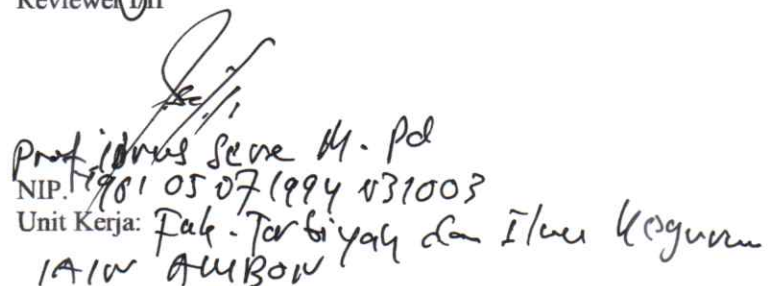 Reviewer I/II
Prof. Idrus Sere M. Pd
NIP. 196105071994031003
Unit Kerja: Fak. Tarbiyah dan Ilmu Keguruan
IAIN AMBON